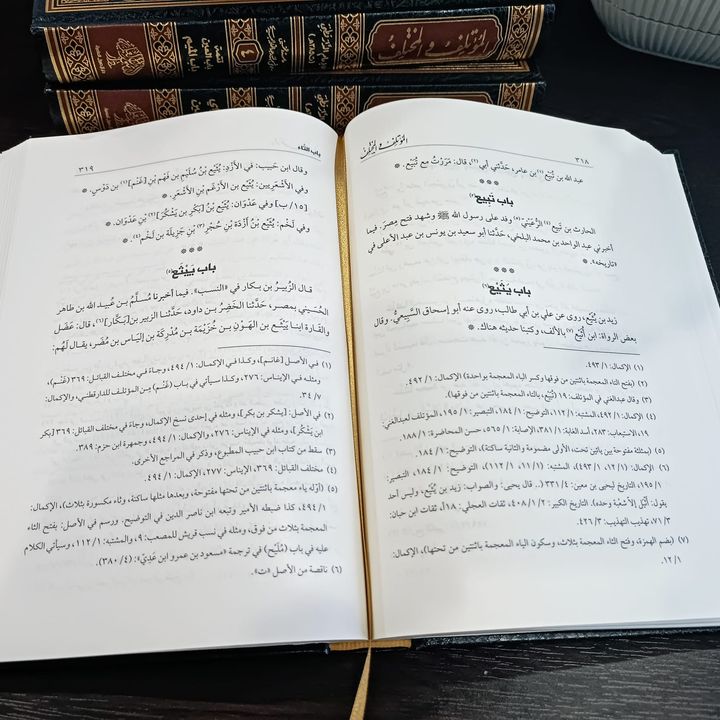 المؤتلف والمختلف
٤
٣١٨
المؤتلف والمختلف
عبد الله بن تُبَيْع (١) بن عامر، حَدَّثني أبي (٢)، قال: مَرَرْتُ مع تُبَيْع. *
* * *
باب تَبِيع (٣)
الحارث بن تَبِيع (٤) الرُّعَيْني (٥) وفد على رسول الله ﷺ وشهد فتح مِصرَ. فيما
أخبرني عبد الواحد بن محمد البلخي، حَدَّثنا أبو سعيد بن يونس بن عبد الأعلى في
«تاريخه». *
* * *
باب يُثَيْع (٦)
زيد بن يُثَيْع، روى عن علي بن أبي طالب، روى عنه أبو إسحاق السَّبِيعيُّ. وقال
بعض الرواة: ابن أُثَيْع (٧) بالألف، وكتبنا حديثه هناك. *
(١) الإكمال: ١/ ٤٩٣.
(٢) (بفتح التاء المعجمة باثنتين من فوقها وكسر الباء المعجمة بواحدة) الإكمال: ١/ ٤٩٢.
(٣) وقال عبدالغني في المؤتلف: ١٩ (تَبِيْع، بالتاء المعجمة باثنتين من فوقها).
(٤) الإكمال: ١/ ٤٩٢، المشتبه: ١/ ١١٢، التوضيح: ١/ ١٨٤، التبصير: ١/ ١٩٥، المؤتلف لعبدالغني:
١٩، الاستيعاب: ٢٨٣، أسد الغابة: ١/ ٣٨١، الإصابة: ١/ ٥٦٥، حسن المحاضرة: ١/ ١٨٨.
(٥) (بمثلثة مفتوحة بين يائين تحت، الأولى مضمومة والثانية ساكنة)، التوضيح: ١/ ١٨٤.
(٦) الإكمال: (١/ ١٢، ١/ ٤٩٣)، المشتبه: (١/ ١١، ١/ ١١٢)، التوضيح: ١/ ١٨٤، التبصير:
١/ ١٩٥، التاريخ ليحيى بن معين: ٤/ ٣٣١ (.. قال يحيى: والصواب: زيد بن يُثَيْع، وليس أحد
يقول: أُثَيْل إلا شعبة وحده). التاريخ الكبير: ٢/ ١/ ٤٠٨، ثقات العجلي: ١٨أ، ثقات ابن حبان:
٣/ ٧١، تهذيب التهذيب: ٣/ ٤٢٦.
(٧) (بضم الهمزة، وفتح الثاء المعجمة بثلاث، وسكون الياء المعجمة باثنتين من تحتها)، الإكمال:
١/ ١٢.
باب الثاء
٣١٩
وقال ابن حَبيب: في الأَزْدِ: يُثَيْع بْنُ سُلَيْمِ بن فَهْمِ بْنِ [غَنْم] (١) بن دَوْس. *
وفي الأَشْعَريين: يُثَيْع بن الأَرْغَم بْنِ الأَشْعَر. *
[١٥/ ب] وفي عَدْوَان: يُثَيْع بْنُ [بَكْر بن يَشْكُرَ] (٢) بْنِ عَدْوَان. *
وفي لَخْم: يُثَيْع بْنُ أَزْدَةَ بْنِ حُجْرِ (٣) بْنِ جَزِيلَةَ بن لَخْم (٤). *
* * *
باب يَيْثَع (٥)
قال الزُّبيرُ بن بكار في «النسب». فيما أخبرنا مُسلَّمُ بن عُبيد الله بن طاهر
الحُسَيني بمصر، حَدَّثنا الخَضِرُ بن داود، حَدَّثنا الزبير بن [بَكَّار] (٦)، قال: عَضَل
والقَارة ابنا يَيْثَع بن الهَوْنِ بنُ خُزَيْمَةَ بنِ مُدْرِكَةَ بن إلْيَاس بن مُضَر، يقال لَهُم:
(١) في الأصل [غانم]، وكذا في الإكمال: ١/ ٤٩٤، وجاءَ في مختلف القبائل: ٣٦٩ (غَنْم)،
ومثله في الإيناس: ٢٧٦، وكذا سيأتي في باب (غَنْم) مِن المؤتلف للدارقطني، والإكمال:
٧/ ٣٤.
(٢) في الأصل: [يشكر بن بكر]، ومثله في إحدى نسخ الإكمال، وجاءَ في مختلف القبائل: ٣٦٩ [بكر
ابن يَشْكُر]، ومثله في الإيناس: ٢٧٦، والإكمال: ١/ ٤٩٤، وجمهرة ابن حزم: ٣٨٩.
(٣) سقط من كتاب ابن حبيب المطبوع، وذكر في المراجع الأخرى.
(٤) مختلف القبائل: ٣٦٩، الإيناس: ٢٧٧، الإكمال: ١/ ٤٩٤.
(٥) (أوّله ياء معجمة باثنتين من تحتها مفتوحة، وبعدها مثلها ساكنة، وثاء مكسورة بثلاث)، الإكمال:
١/ ٤٩٤، كذا ضبطه الأمير وتبعه ابن ناصر الدين في التوضيح. ورسم في الأصل: بفتح الثاء
المعجمة بثلاث من فوق، ومثله في نسب قريش للمصعب: ٩، والمشتبه: ١/ ١١٢، وسيأتي الكلام
عليه في باب (مُلَيْح) في ترجمة «مسعود بن عمرو ابن عَدِيّ». (٤/ ٣٨٠).
(٦) ناقصة من الأصل «ت».